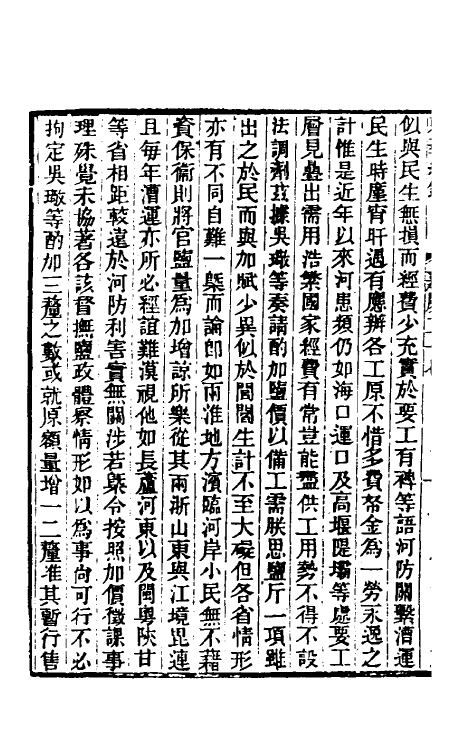 似與民生無損而經費少充實於要工有裨等語河防關繫漕運
民生時廑宵旰遇有應辦各工原不惜多費帑金為一勞永逸之
計惟是近年以來河患頻仍如海口運口及高堰隄壩等處要工
層見疊出需用浩繁國家經費有常豈能盡供工用勢不得不設
法調劑茲據吳璥等奏請酌加鹽價以備工需朕思鹽斤一項雖
出之於民而與加賦少異似於閭閻生計不至大礙但各省情形
亦有不同自難一槩而論卽如兩淮地方濱臨河岸小民無不藉
資保衞則將官鹽量為加增諒所樂從其兩浙山東與江境毘連
且每年漕運亦所必經誼難漠視他如長蘆河東以及閩粵陜甘
等省相距較遠於河防利害實無關涉若槩令按照加價徵課事
理殊覺未協著各該督撫鹽政體察情形如以為事尙可行不必
拘定吳璥等酌加三釐之數或就原額量增一二釐准其暫行售